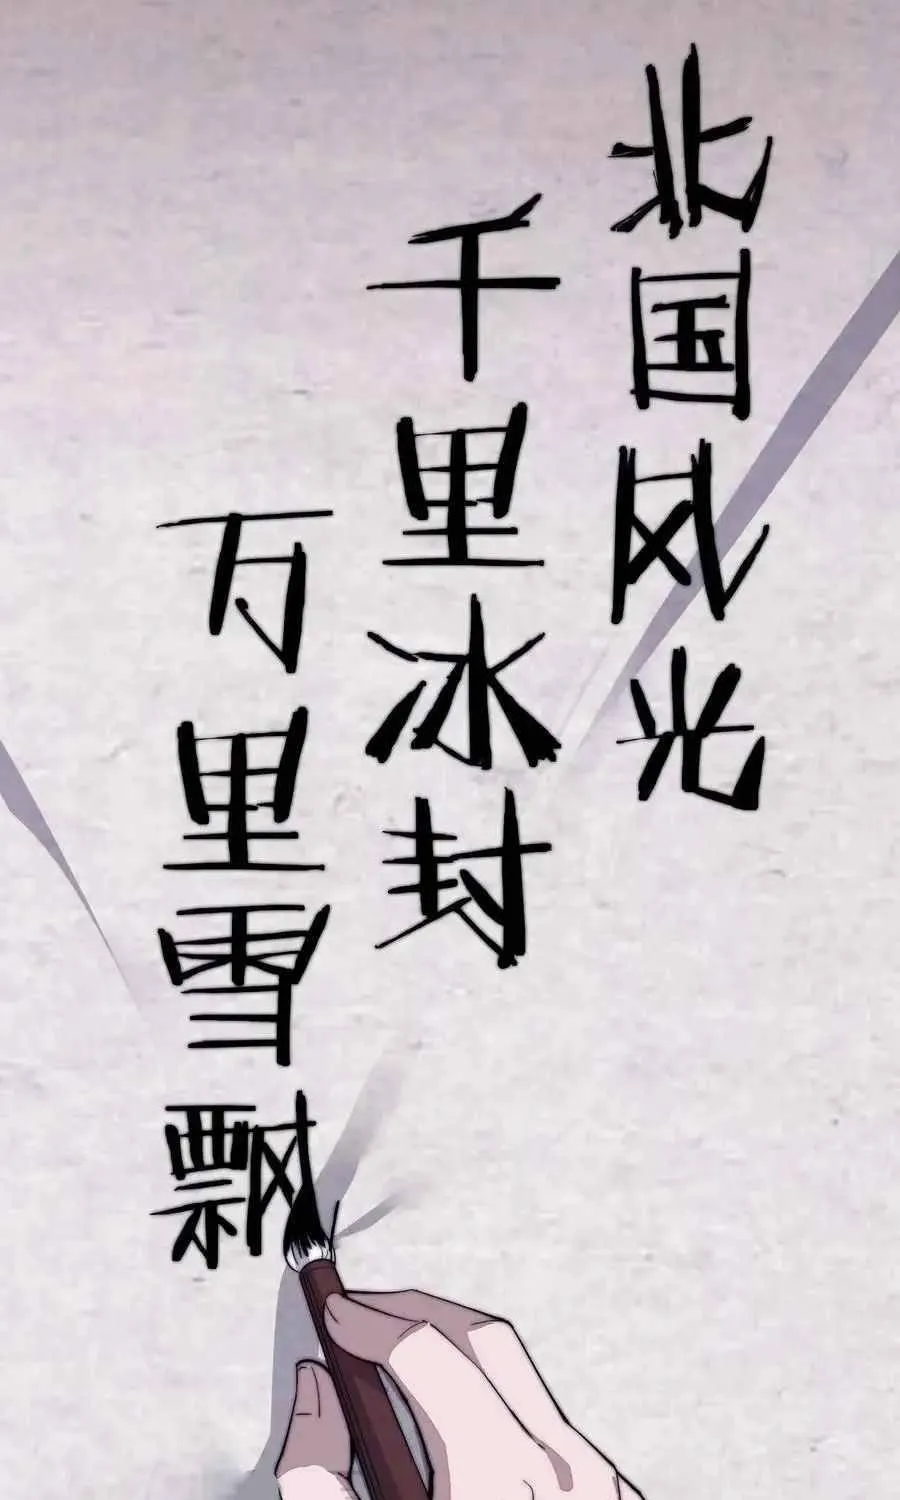 北国风光
千里冰封
万里雪飘